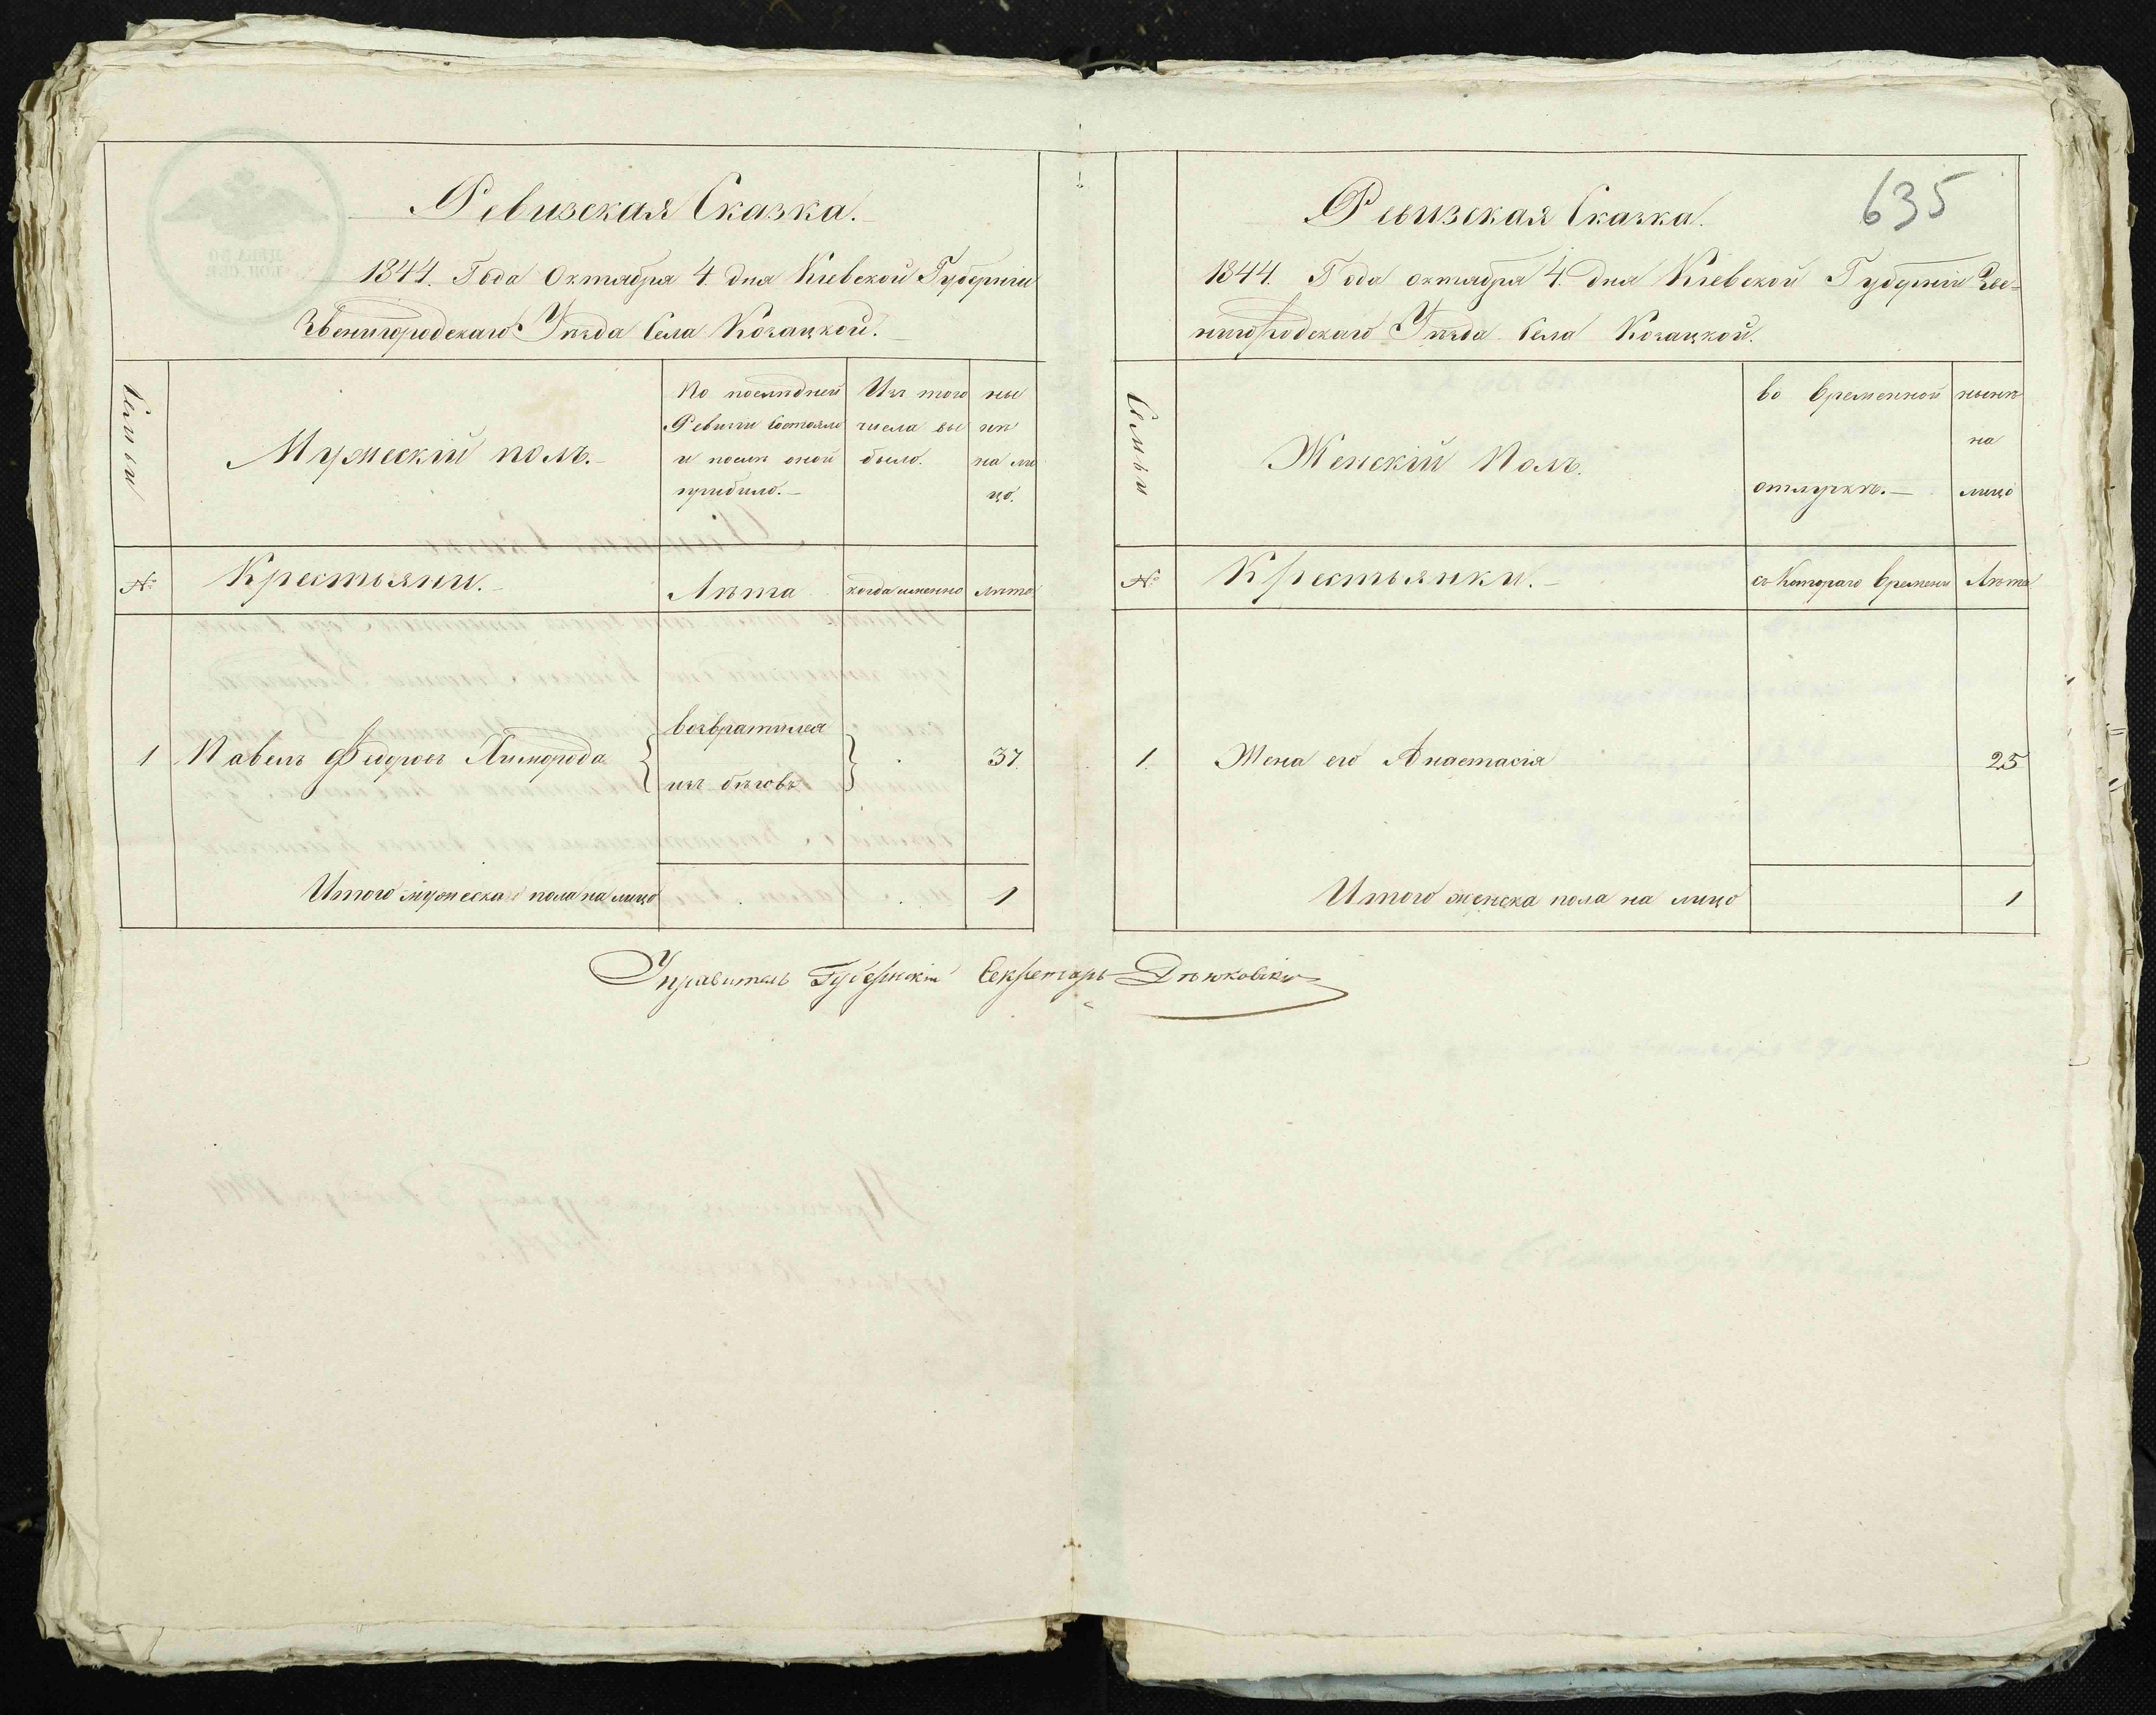 Ревизская Сказка.
1844. Года Октября 4. дня Кіевской Губерніи
Звенигородскаго Уѣзда Села Козацкой.
Семьи
Мужескій полъ.
По послѣдней
Ревизіи состояло
и послѣ оной
прибыло.
Изъ того
числа вы
было.
ны
нѣ
на ли
цо.
№
Крестьяни.
Лѣта
когда именно
лѣта
1
Павелъ Федоровъ
возвратился
изъ бѣговъ
37.
Итого мужеска пола на лицо
1
635
Ревизская Сказка.
1844. Года октября 4. дня Кіевской Губерніи Зве-
нигородскаго Уѣзда Села Козацкой.
Семьи
Женскій Полъ.
во временной
отлучкѣ.
нынѣ
на
лицо
№
Крестьянки.
съ Котораго Времени
Лѣта
1.
Жена его Анастасія
25
Итого женска пола на лицо
1
Управитель Губернскій Секретарь